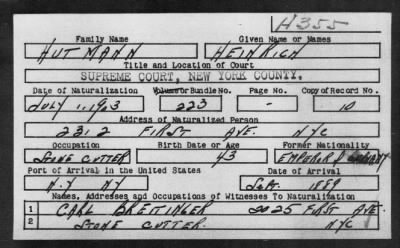 H355
Family Name Given Name or Names
HUTMANN HEINRICH
Title and Location of Court
SUPREME COURT, NEW YORK COUNTY.
Date of Naturalization Volume or Bundle No. Page No. Copy of Record No.
JULY 1, 1903 223 - 10
Address of Naturalized Person
2312 FIRST AVE. NYC
Occupation Birth Date or Age Former Nationality
STONE CUTTER 43 EMPEROR GERMANY
Port of Arrival in the United States Date of Arrival
N.Y. NY SEPT. 1889
Names, Addresses and Occupations of Witnesses To Naturalization
1 CARL BREITINGER 2025 FIRST AVE.
2 STONE CUTTER. NYC